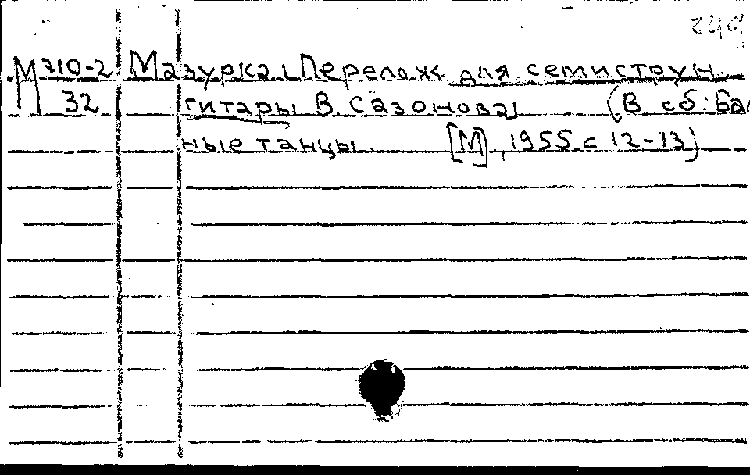 М 310-2 Мазурка. Перелож для семиструн.
32 гитары В. Сазонова (В сб: Баль
ные танцы. [М], 1955 с 12-13)